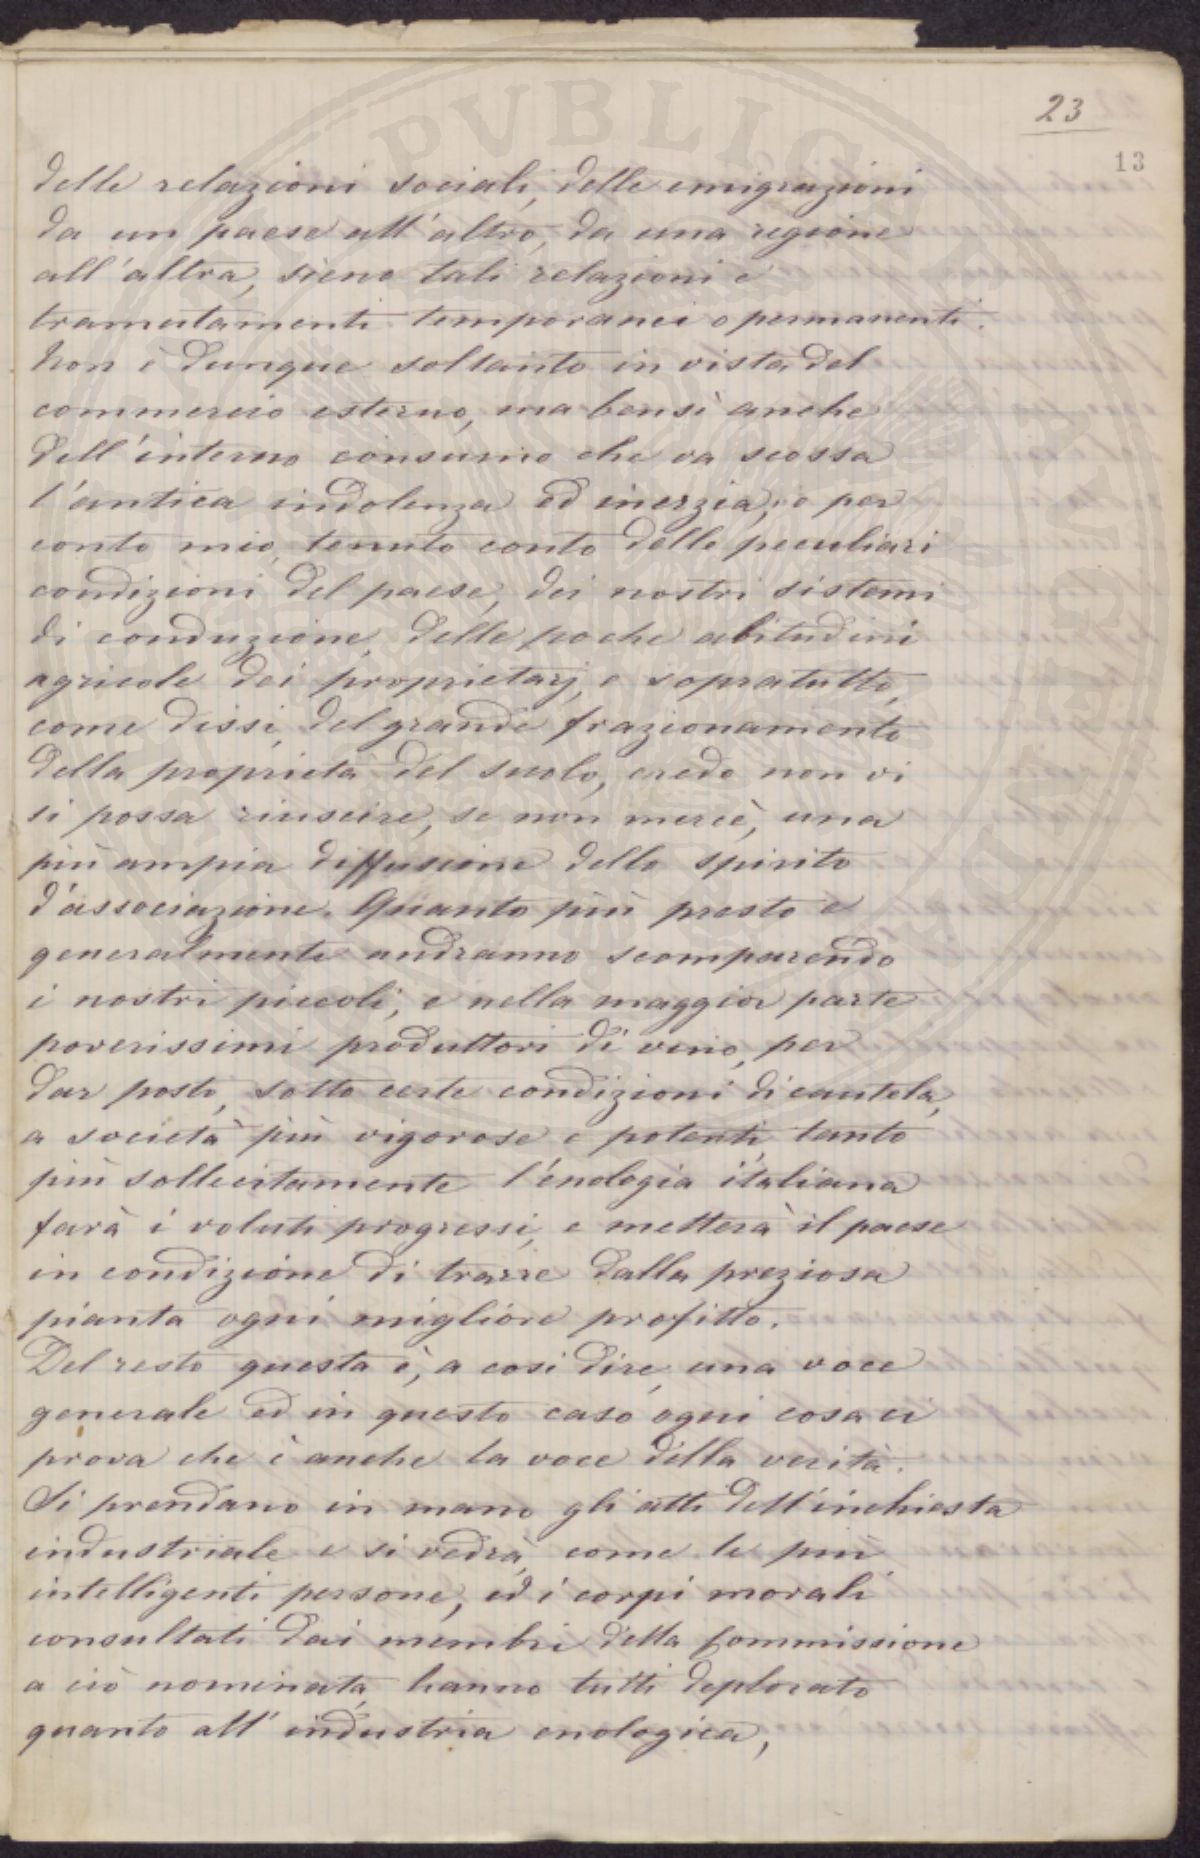 23
13
delle relazioni sociali, delle emigrazioni
da un paese all'altro, da una regione
all'altra, sieno tali relazioni e
tramutamenti temporanei o permanenti.
Non è dunque soltanto in vista del
commercio esterno, ma bensì anche
dell'interno consumo che va scossa
l'antica indolenza ed inerzia; e per
conto mio, tenuto conto delle peculiari
condizioni del paese, dei nostri sistemi
di conduzione, delle poche abitudini
agricole dei proprietarj, e sopratutto,
come dissi, del grande frazionamento
della proprietà del suolo, credo non vi
si possa riuscire, se non mercè, una
più ampia diffusione dello spirito
d'associazione. Quanto più presto e
generalmente andranno scomparendo
i nostri piccoli, e nella maggior parte
poverissimi produttori di vino, per
dar posto, sotto certe condizioni di cautela,
a società più vigorose e potenti, tanto
più sollecitamente l'enologia italiana
farà i voluti progressi, e metterà il paese
in condizione di trarre dalla preziosa
pianta ogni migliore profitto.
Del resto questa è, a così dire, una voce
generale ed in questo caso ogni cosa ci
prova che è anche la voce della verità.
Si prendano in mano gli atti dell'inchiesta
industriale e si vedrà, come le più
intelligenti persone, ed i corpi morali
consultati dai membri della Commissione
a ciò nominata, hanno tutti deplorato
quanto all'industria enologica,